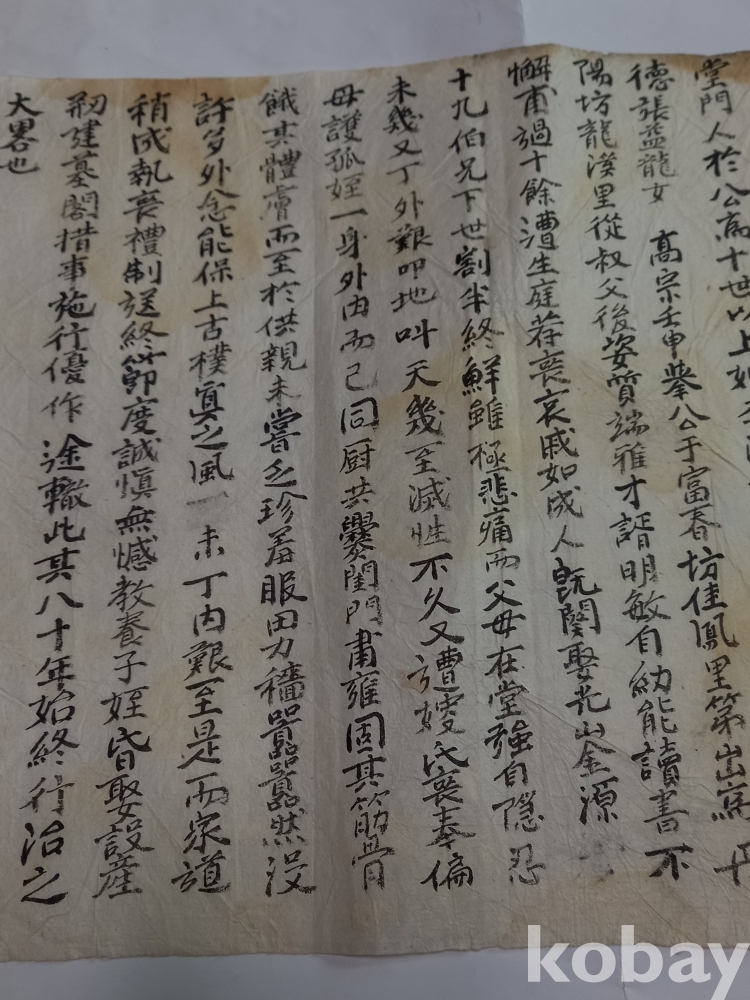 堂門人於公高十世以上如
德張益龍女 高宗壬申擧公于富春坊佳鳳里第出寓
陽坊龍漢里從叔父後姿質端雅才諝明敏自幼能讀書不
懈甫過十餘遭生庭荐喪哀戚如成人旣闋娶光山金源
十九伯兄下世割半終鮮雖極悲痛而父母在堂強自隱忍
未幾又丁外艱叩地叫天幾至滅性不久又遭嫂氏喪奉偏
母護孤姪一身外內而已同厨共爨閨門肅雍固其筋骨
餓其體膚而至於供親未嘗乏珍羞服田力穡囂囂然沒
許多外念能保上古樸寘之風 未丁內艱至是而家道
稍成執喪禮制送終節度誠愼無憾敎養子姪昏娶設産
剏建墓閣措事施行優作途轍此其八十年始終行治之
大畧也
kobay